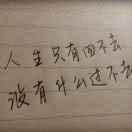 人生只有回不去
没有什么过不去